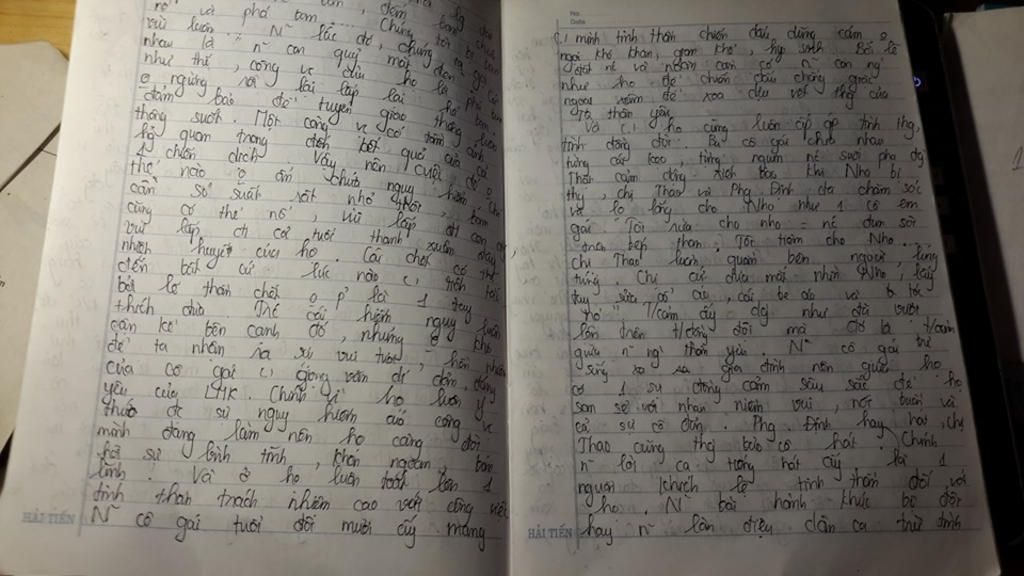 nổ và phá bom
vui luôn . N~ lúc đó, chúng tôi
nhau là n~ con quỷ mắt đen
như thế, công vc dấu họ là phá bom
o ngừng rồi lại lấp lại
đảm bảo để tuyến giao thông luôn
thông suốt . Một công vc có tầm ảnh
hg quan trọng đến kết quả của cả
1 chiến dịch . Vậy nên cuộc
thế nào o ẩn chứa nguy hiểm, chỉ
cần sơ suất rất nhỏ thôi, bom
cũng có thể nổ, vùi lấp đi con
vùi lấp đi cả tuổi thanh xuân đầy
nhiệt huyết của họ . Cái chết có thể
đến bất cứ lúc nào
bởi lẽ thần chết o p' là 1 tay
thích đùa . Thế cái hiểm nguy luôn
cận kề bên cạnh đó, nhưng o khó
để ta nhận ra sự vui tươi, hồn nhiên
của cô gái giọng văn dí dỏm đáng
yêu của LMK . Chính vì họ luôn ý
thức đc sự nguy hiểm
mình đang làm nên họ càng đòi
hỏi sự bình tĩnh, khôn ngoan, bản
lĩnh . Và ở họ luôn toát lên 1
tinh thần trách nhiệm cao với công việc
N~ cô gái tuổi đôi mươi ấy mang
HẢI TIẾN
No.
Date
mình tinh thần chiến đấu dũng cảm o
ngại khó khăn, gian khổ, hy sinh . Bởi lẽ
đất nc và nhân dân có n~ con ng'
như họ để chiến đấu chống giặc
ngoại xâm để xoa dịu vết thg của
Tổ thân yêu .
Và họ cũng luôn ấp áp tình thg,
tình đồng đội . Ba cô gái chia nhau
từng cái kẹo, từng ngụm nc suối pha đg
Thật cảm động xiết bao khi Nho bị
thg, chị Thao và Phg Định đã chăm sóc
và lo lắng cho Nho như 1 cô em
gái . "Tôi rửa cho nho = nc đun sôi
trên bếp than . Tôi tiêm cho Nho .
Chị Thao luẩn quẩn bên ngoài, lúng
túng . Chị cứ đưa mắt nhìn Nho, lấy
tay sửa cổ áo, cái ve áo và tóc
nó" . T/cảm ấy dg như đã vượt
lên trên t/đồng đội mà đó là t/cảm
giữa n~ ng' thân yêu . N~ cô gái trẻ
sống xa gia đình nên giữa họ
có 1 sự đồng cảm sâu sắc để họ
san sẻ với nhau niềm vui, nỗi buồn và
cả sự cô đơn . Phg Định hay hát, chị
Thao cũng thg bảo cô hát . Chính
n~ lời ca tiếng hát ấy là 1
nguồn khích lệ tinh thần đối với
họ . N~ bài hành khúc bộ đội
hay n~ làn điệu dân ca trữ tình
HẢI TIẾN